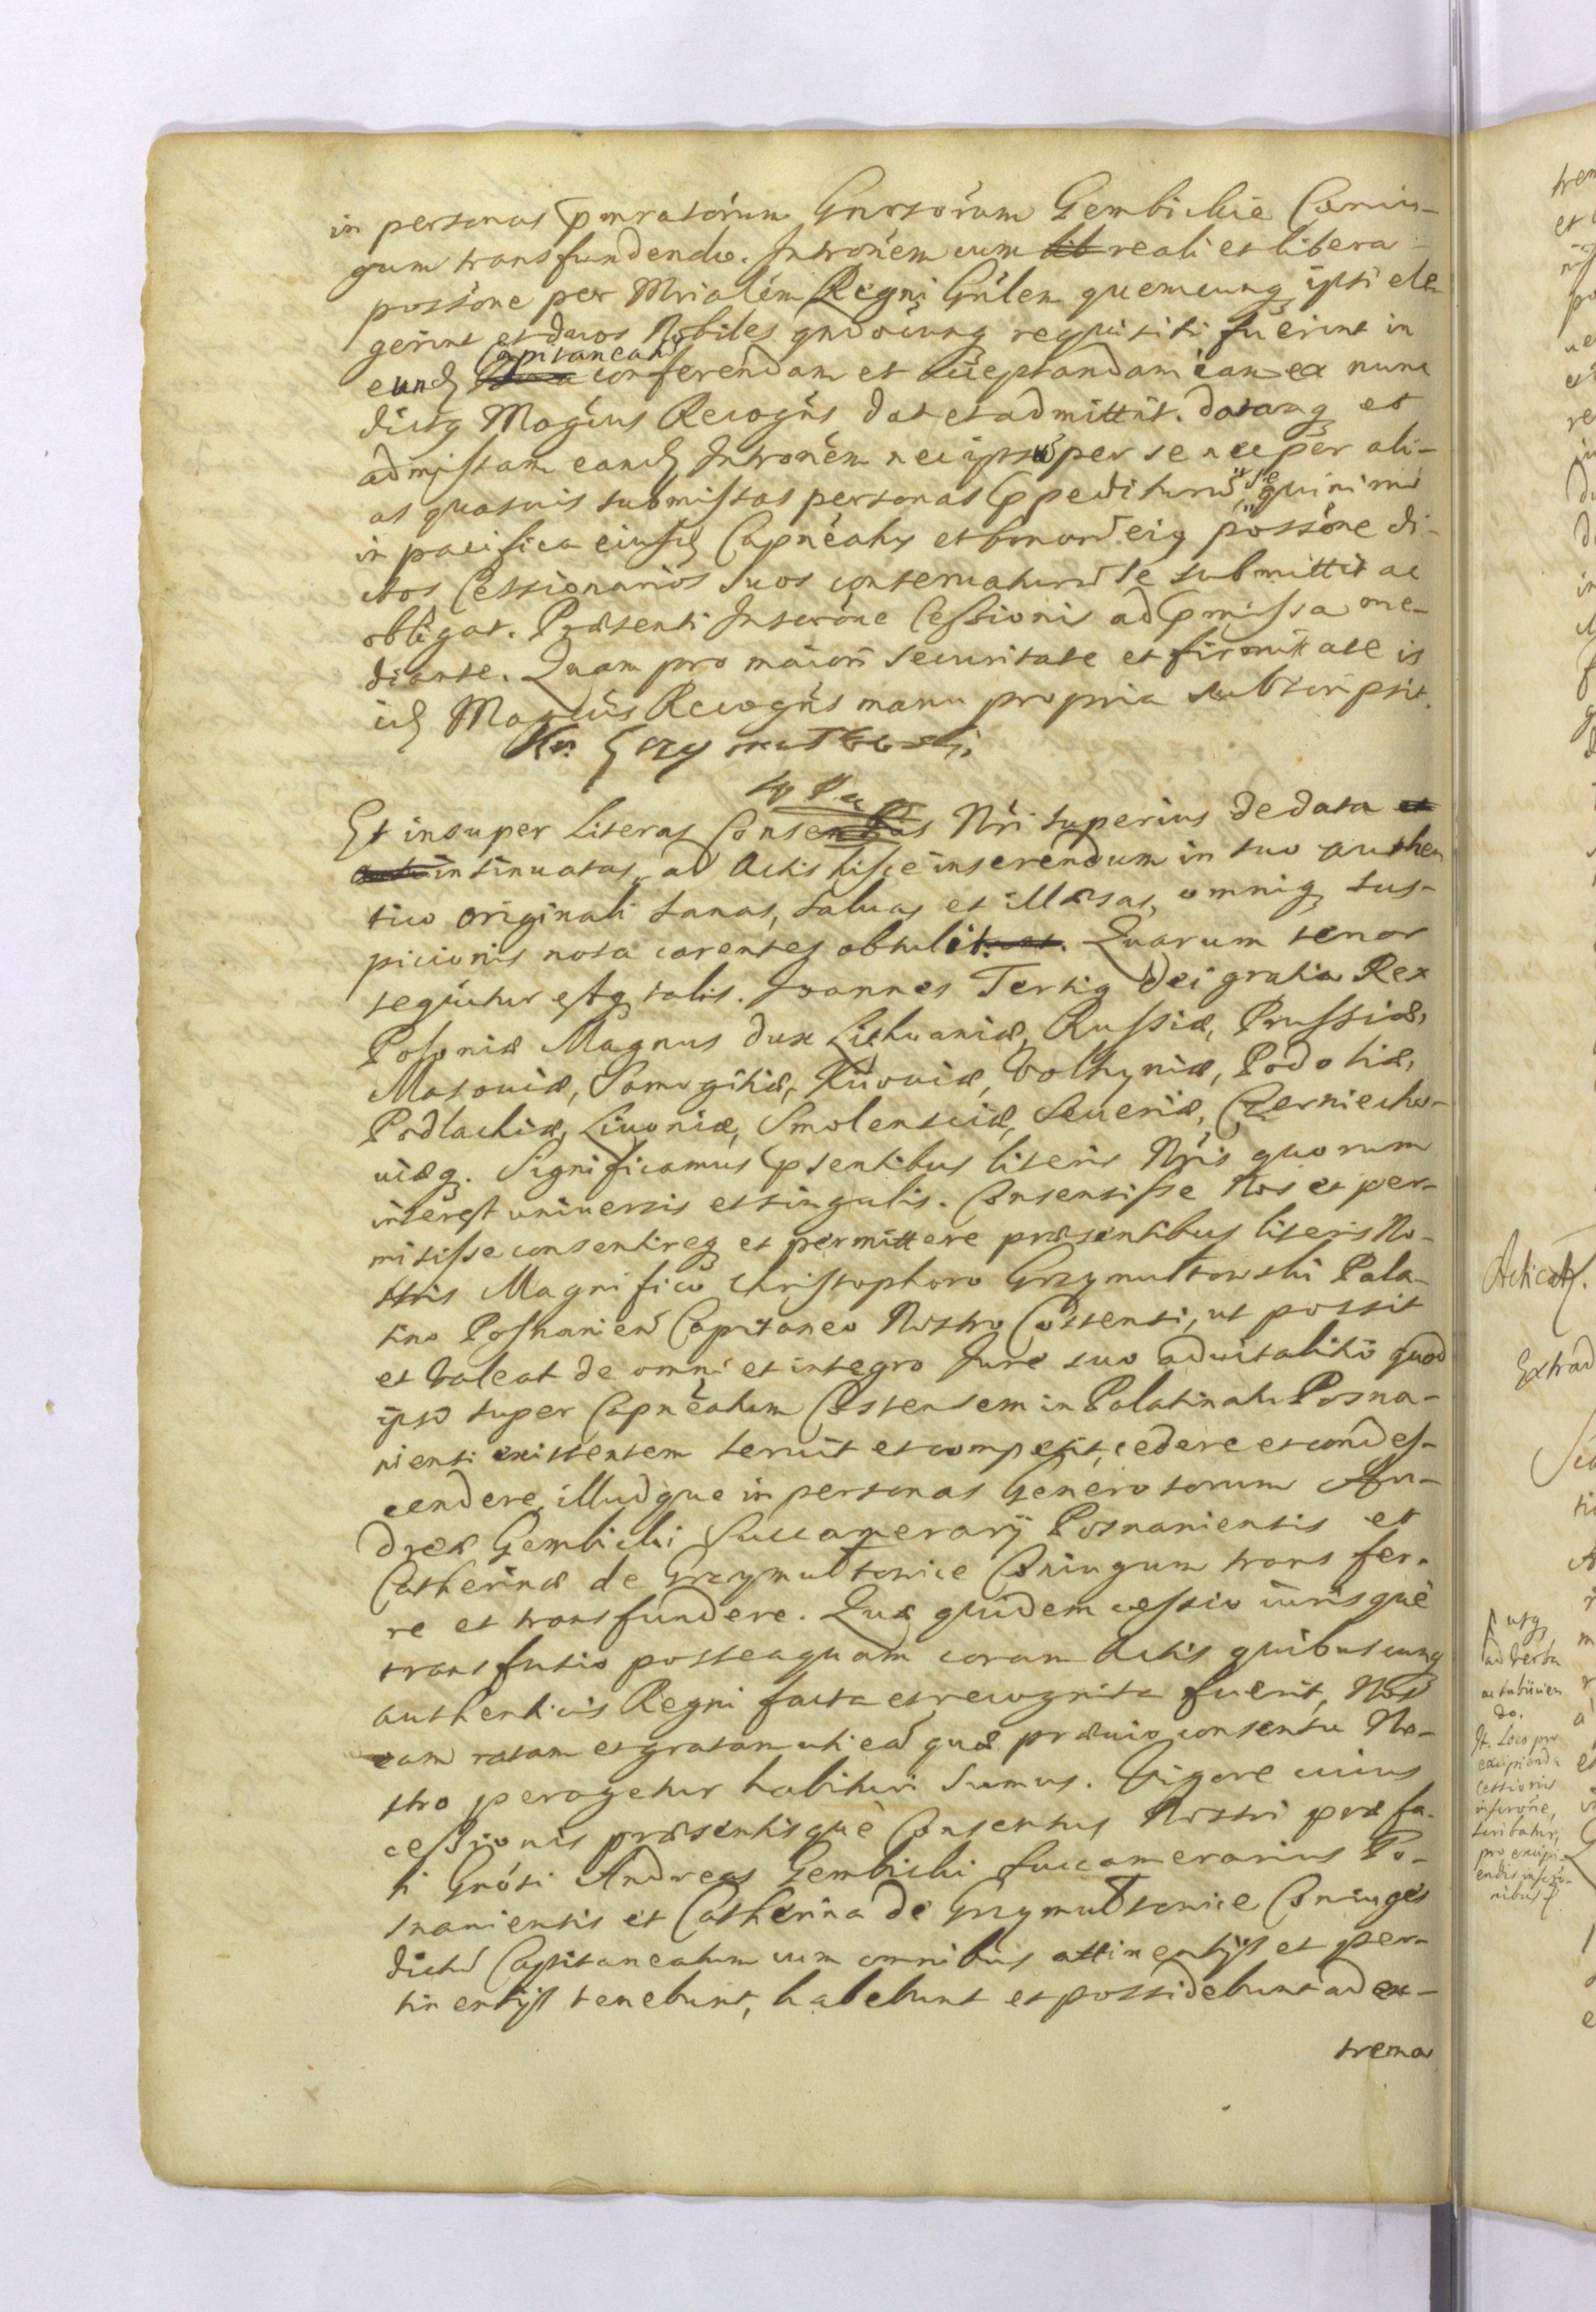 in personas pmratorum Gnrsorum Gembickie Coniu-
gum transfundendo. Intronem cum lib reali et libera
possone per Mrialem Regni Gnlem quemcunq ipsi ele-
gerint et duos Nobiles qndocunq requisiti fuerint in
eund Capitaneatu conferendam et acceptandam iam ex nunc
dictq Magcus Recogns dat et admittit. datamq et
admissam eand Intronem nec ipse per se nec per ali-
as quasuis submissas personas Ppediturum se quinimo
in pacifica eiusd Capneatq et bonorum eiq possone di-
ctos Cessionarios suos conseruaturum se submittit ac
obligat. Præsenti Inscrone Cessionis ad pmissa me-
diante. Quam pro maiori securitate et firmitate is
id Magcus Recogns manu propria subscripsit.
Kr. Grzymultowski
w P
Et insuper Literas Consensus Nri superius de data et
insinuatas, ad Actis hisce inserendum in suo authen
tico originali sanas, saluas et illæsas, omniq sus-
picionis nota carentes obtulit. Quarum tenor
sequitur estq talis. Joannes Tertiq Dei gratia Rex
Poloniæ Magnus dux Lithuaniæ, Russiæ, Prussiæ,
Masouiæ, Samogitiæ, Kiiouiæ, Volhyniæ, Podoliæ,
Podlachiæ, Liuoniæ, Smolensciæ, Seueriæ, Czerniecho-
uiæq. Significamus psentibus literis Nris quorum
interest uniuersis et singulis. Consensisse Nos et per-
misisse consentireq et permittere præsentibus literis No-
stris Magnifico Christophoro Grzymultowski Pala-
tino Posnanien Capitaneo Nostro Costensi, ut possit
et valeat de omni et integro Jure suo aduitalitio quod
ipso super Capneatum Costensem in Palatinatu Posna-
niensi existentem seruit et competit, cedere et condes-
cendere, illudque in personas Generosorum An-
dreæ Gembicki Succamerarij Posnaniensis et
Catherinæ de Grzymultowice Coniugum transfer-
re et transfundere. Quæ quidem cessio iurisquè
transfusio posteaquam coram Actis quibuscunq
authenticis Regni facta et recognita fuerit, Nos
eam ratam et gratam uti ea quæ præuio consensu No-
stro peragetur habituri sumus. Vigore cuius
cessionis præsentisquè Consensus Nostri præfa-
ti Gnosi Andreas Gembicki Succamerarius Po-
snaniensis et Catherina de Grzymultowice Coniuges
dictu Capitaneatum cum omnibus attinentijs et per-
tinentijs tenebunt, habebunt et possidebunt ad ex-
trema
Acticat.
Extrad
usq
ad verba
ac subijcien
do.
It. Loco pro
excipienda
Cessionis
inscrone,
scribatur,
pro excipi-
endis inscro-
nibus